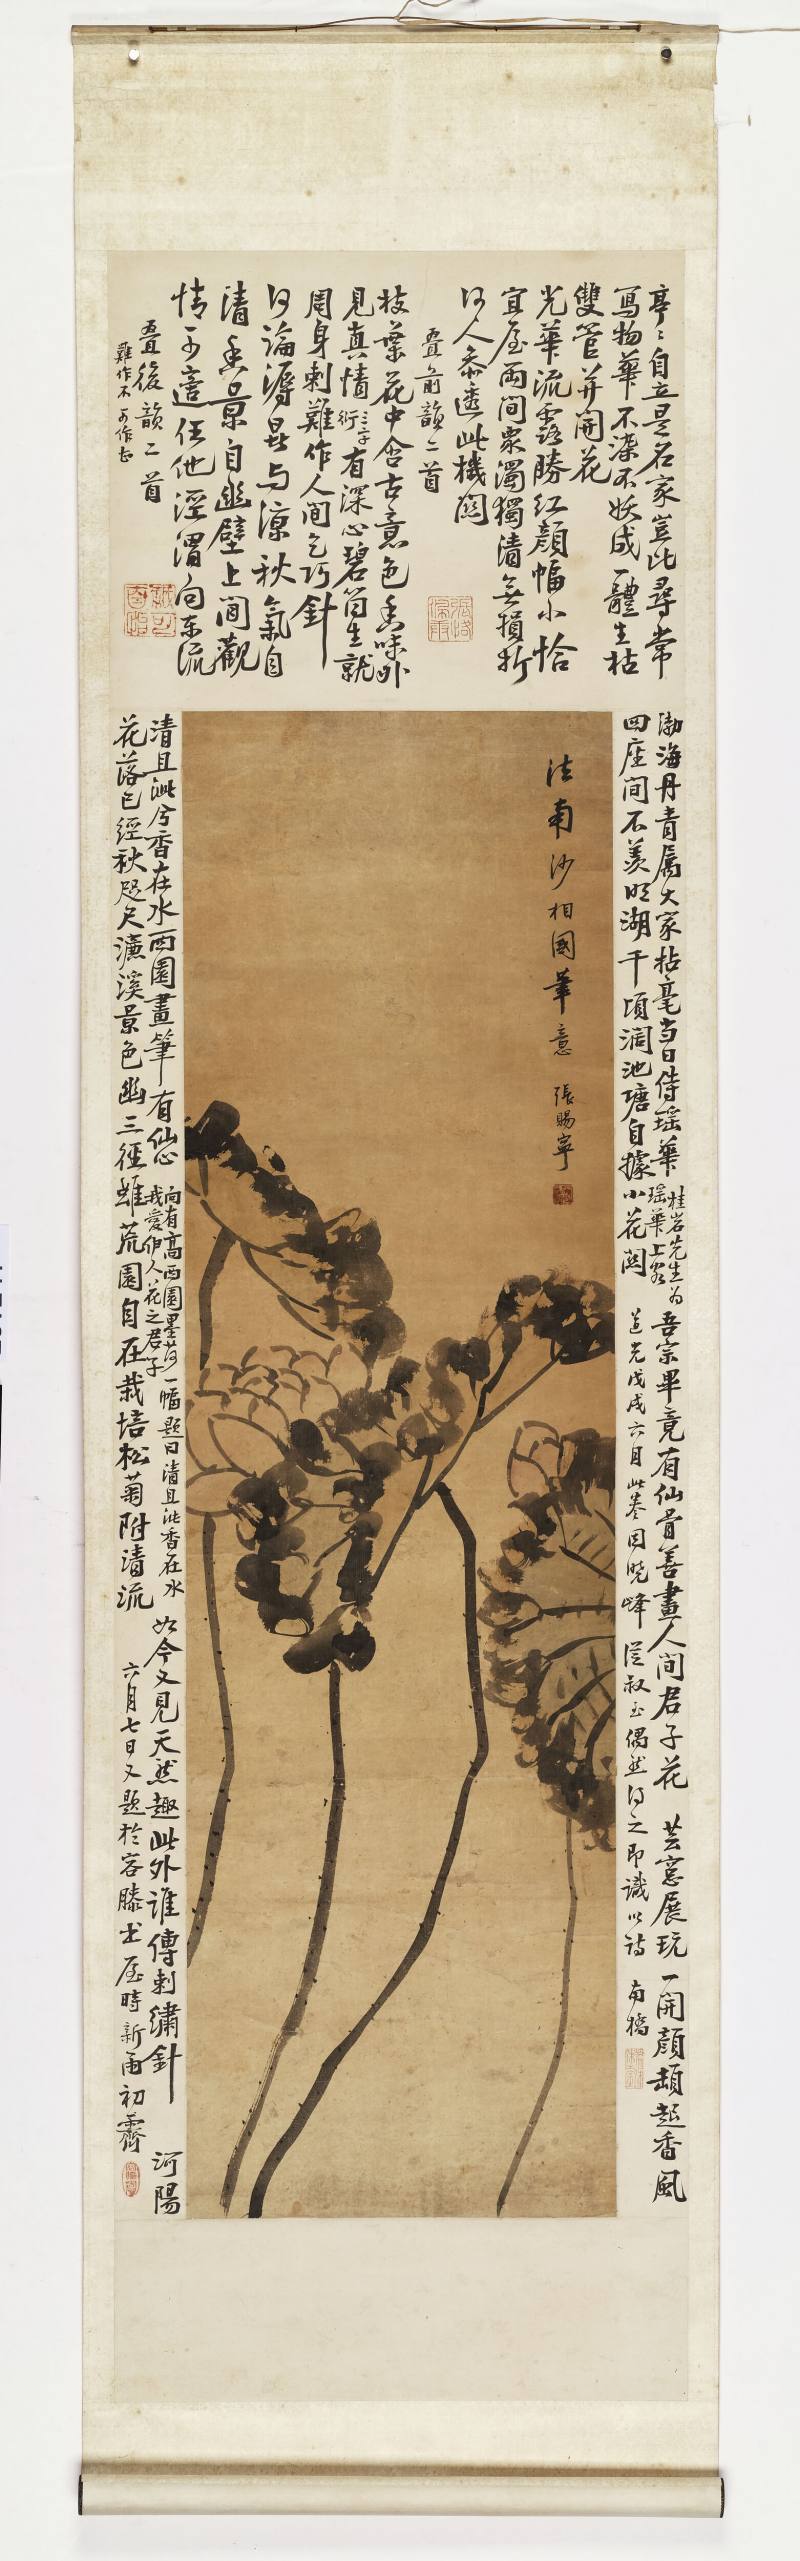 亭〻自立是名家豈比尋常
寫物華不染不妖成一體生枯
雙管并開花
光華流露勝紅顏幅小恰
宜屋兩間眾濁獨清無損折
何人參透此機關
疊前韻二首
枝葉花中含古意色香味外
見真情 有深心碧筒生就
周身刺難作人間乞巧針
何論溽暑与涼秋氣自
清香景自幽壁上閒觀
情可適任他涇渭向東流
疊後韻二首
難作不可作甚
法南沙相國筆意 張賜寧
渤海丹青屬大家拈毫当日侍瑤華 桂岩先生为瑤華上客 吾宗畢竟有仙骨善畫人間君子花 芸窓展玩一開顏頓起香風
四座間不羨明湖千頃濶池塘自據小花關 道光戊戌六月此卷因曉峰從叔玉偶然得之即識以詩 南橋
清且泚兮香在水西園畫筆有仙心 向有高西園墨荷一幅題曰清且泚香在水我愛伊人花之君子 如今又見天然趣此外誰傳刺繡針 河陽
花落已經秋咫尺濂溪景色幽三徑雖荒園自在栽培松菊附清流 六月七日又題於容膝書屋時新雨初霽